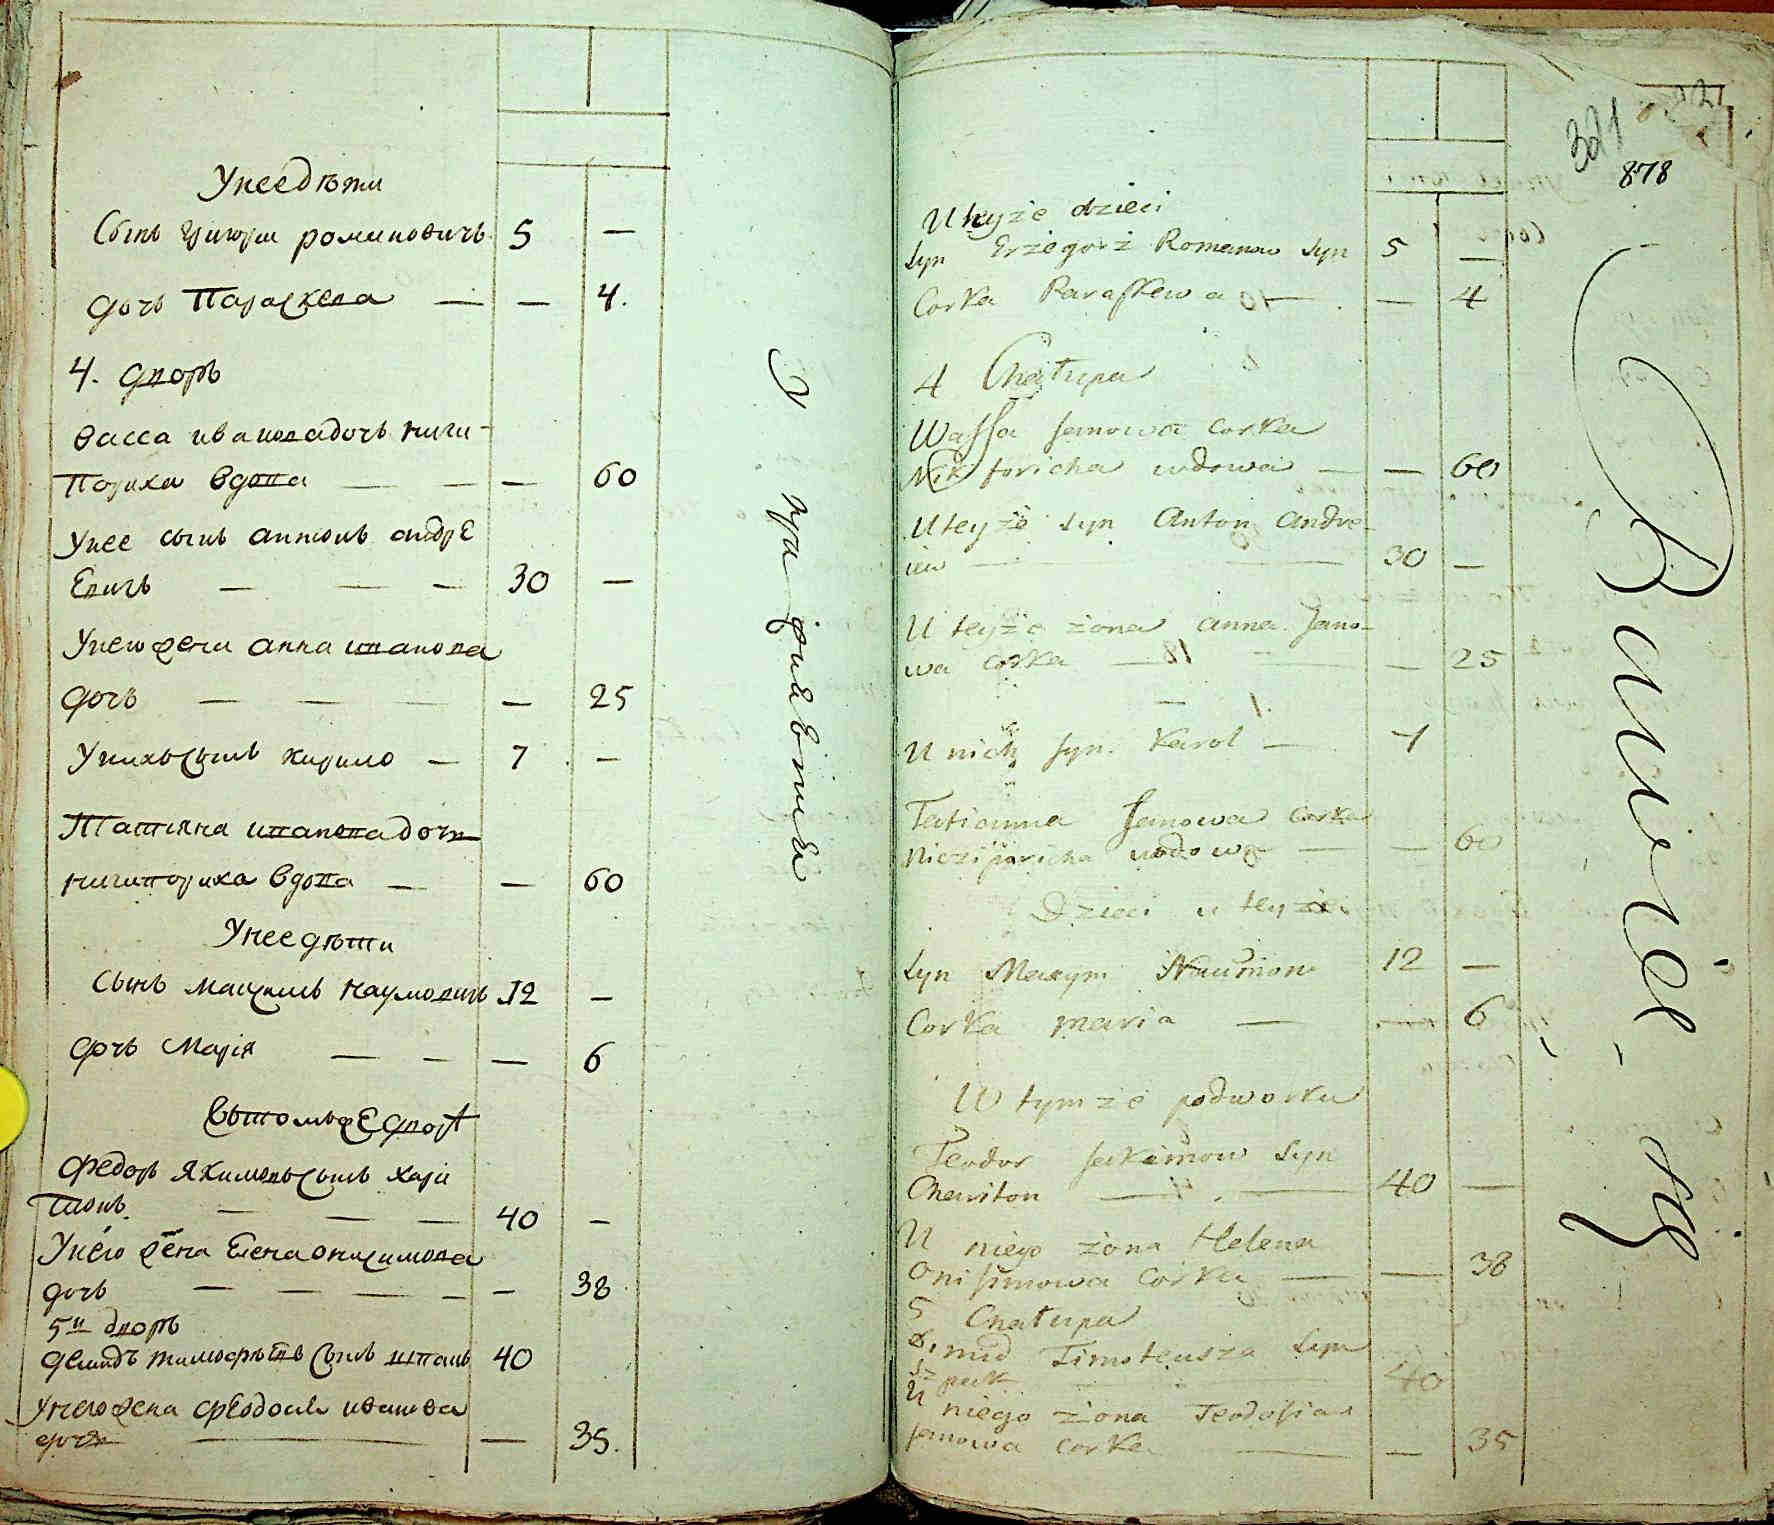 У нее дѣти
Сынъ Григори романовичъ 5 —
дочь Параскева — — 4.
4. дворъ
васса ивановадочь ничи-
пориха вдова — — — 60
У нее сынъ антонъ андре
евичь — — — 30 —
У него жена анна иванова
дочь — — — — 25
У нихъ сынъ кирило — 7 —
Татияна ивановадочь
ничипориха вдова — — 60
У нее дѣти
Сынъ максимъ наумовичь 12 —
дочь Марія — — — 6
Въ томъ же дворѣ
Федоръ якимовъ сынъ хари
тонъ. — — — 40 —
У него жена Елена онисимова
дочь — — — — — 38
5й дворъ
демидъ тимофѣевъ сынъ шпакъ 40
У него жена феодосия иванова
дочь — — 35.
321
878
U teyże dzieci
Syn Grzegorz Romanow Syn 5 —
Corka Paraskewa — — 4
4 Chałupa
Wassa Janowa Corka
Nikforicha wdowa — — 60
U teyże syn Anton Andre-
iew — — 30 —
U teyże żona Anna Jano-
wa Corka — — — 25
U nich syn Karol — 7
Tatianna Janowa Corka
Niczyporicha wdowa — — 60
Dzieci u teyże
Syn Maxym Naumow 12 —
Corka maria — — 6
W tymże podworku
Teodor Jakimow Syn
Chariton — — 40 —
U niego żona Helena
Onisimowa Corka — — 38
5 Chałupa
Dimid Timoteusza Syn
Szpak 40
U niego żona Teodosia
Janowa Corka — — 35